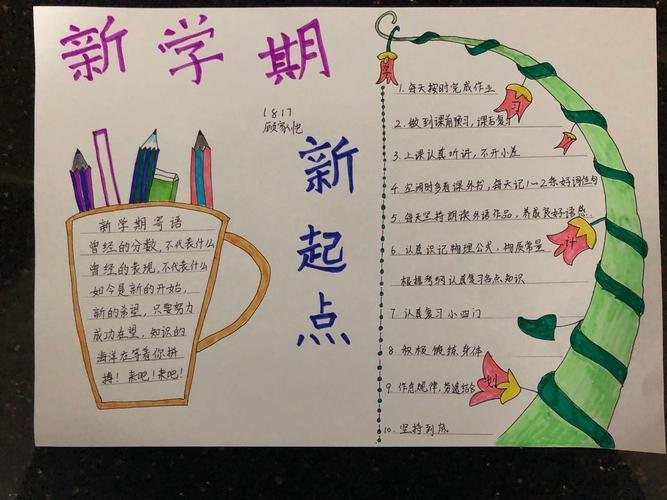 新学期
1817
顾家恺
新起点
新学期寄语
曾经的分数,不代表什么
曾经的表现,不代表什么
如今是新的开始,
新的希望,只要努力
成功在望,知识的
海洋在等着你拼
搏!来吧!来吧!
学
习
计
划
1.每天按时完成作业
2.做到课前预习,课后复习
3.上课认真听讲,不开小差
4.空闲时多看课外书,每天记1~2条好词佳句
5.每天坚持朗读外语作品,养成良好语感.
6.认真识记物理公式,物质常量
根据考纲认真复习各点知识
7.认真复习小四门
8.积极锻炼身体
9.作息规律,劳逸结合
10.坚持到底